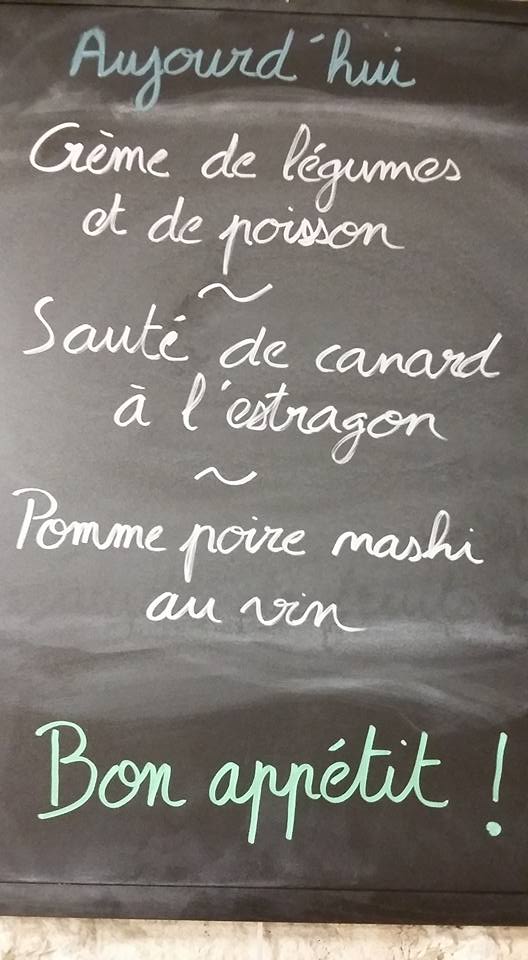 Aujourd'hui
Crème de légumes
et de poisson
~
Sauté de canard
à l'estragon
~
Pomme poire nashi
au vin
Bon appétit !